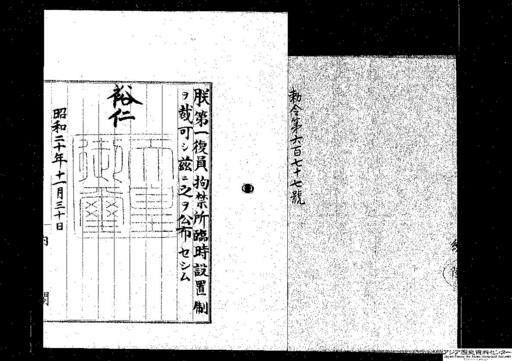 勅令第六百七十七號
朕第一復員拘禁所臨時設置制
ヲ裁可シ茲ニ之ヲ公布セシム
裕仁
天皇御璽
昭和二十年十一月三十日
内閣
アジア歴史資料センター